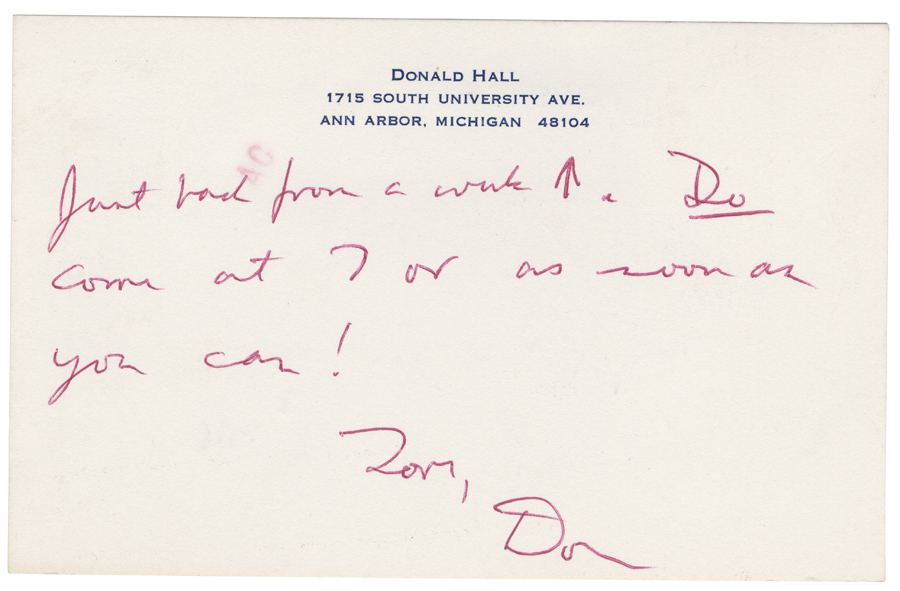 DONALD HALL
1715 SOUTH UNIVERSITY AVE.
ANN ARBOR, MICHIGAN 48104
Just back from a week ↑. Do
come at 7 or as soon as
you can!
Love,
Don